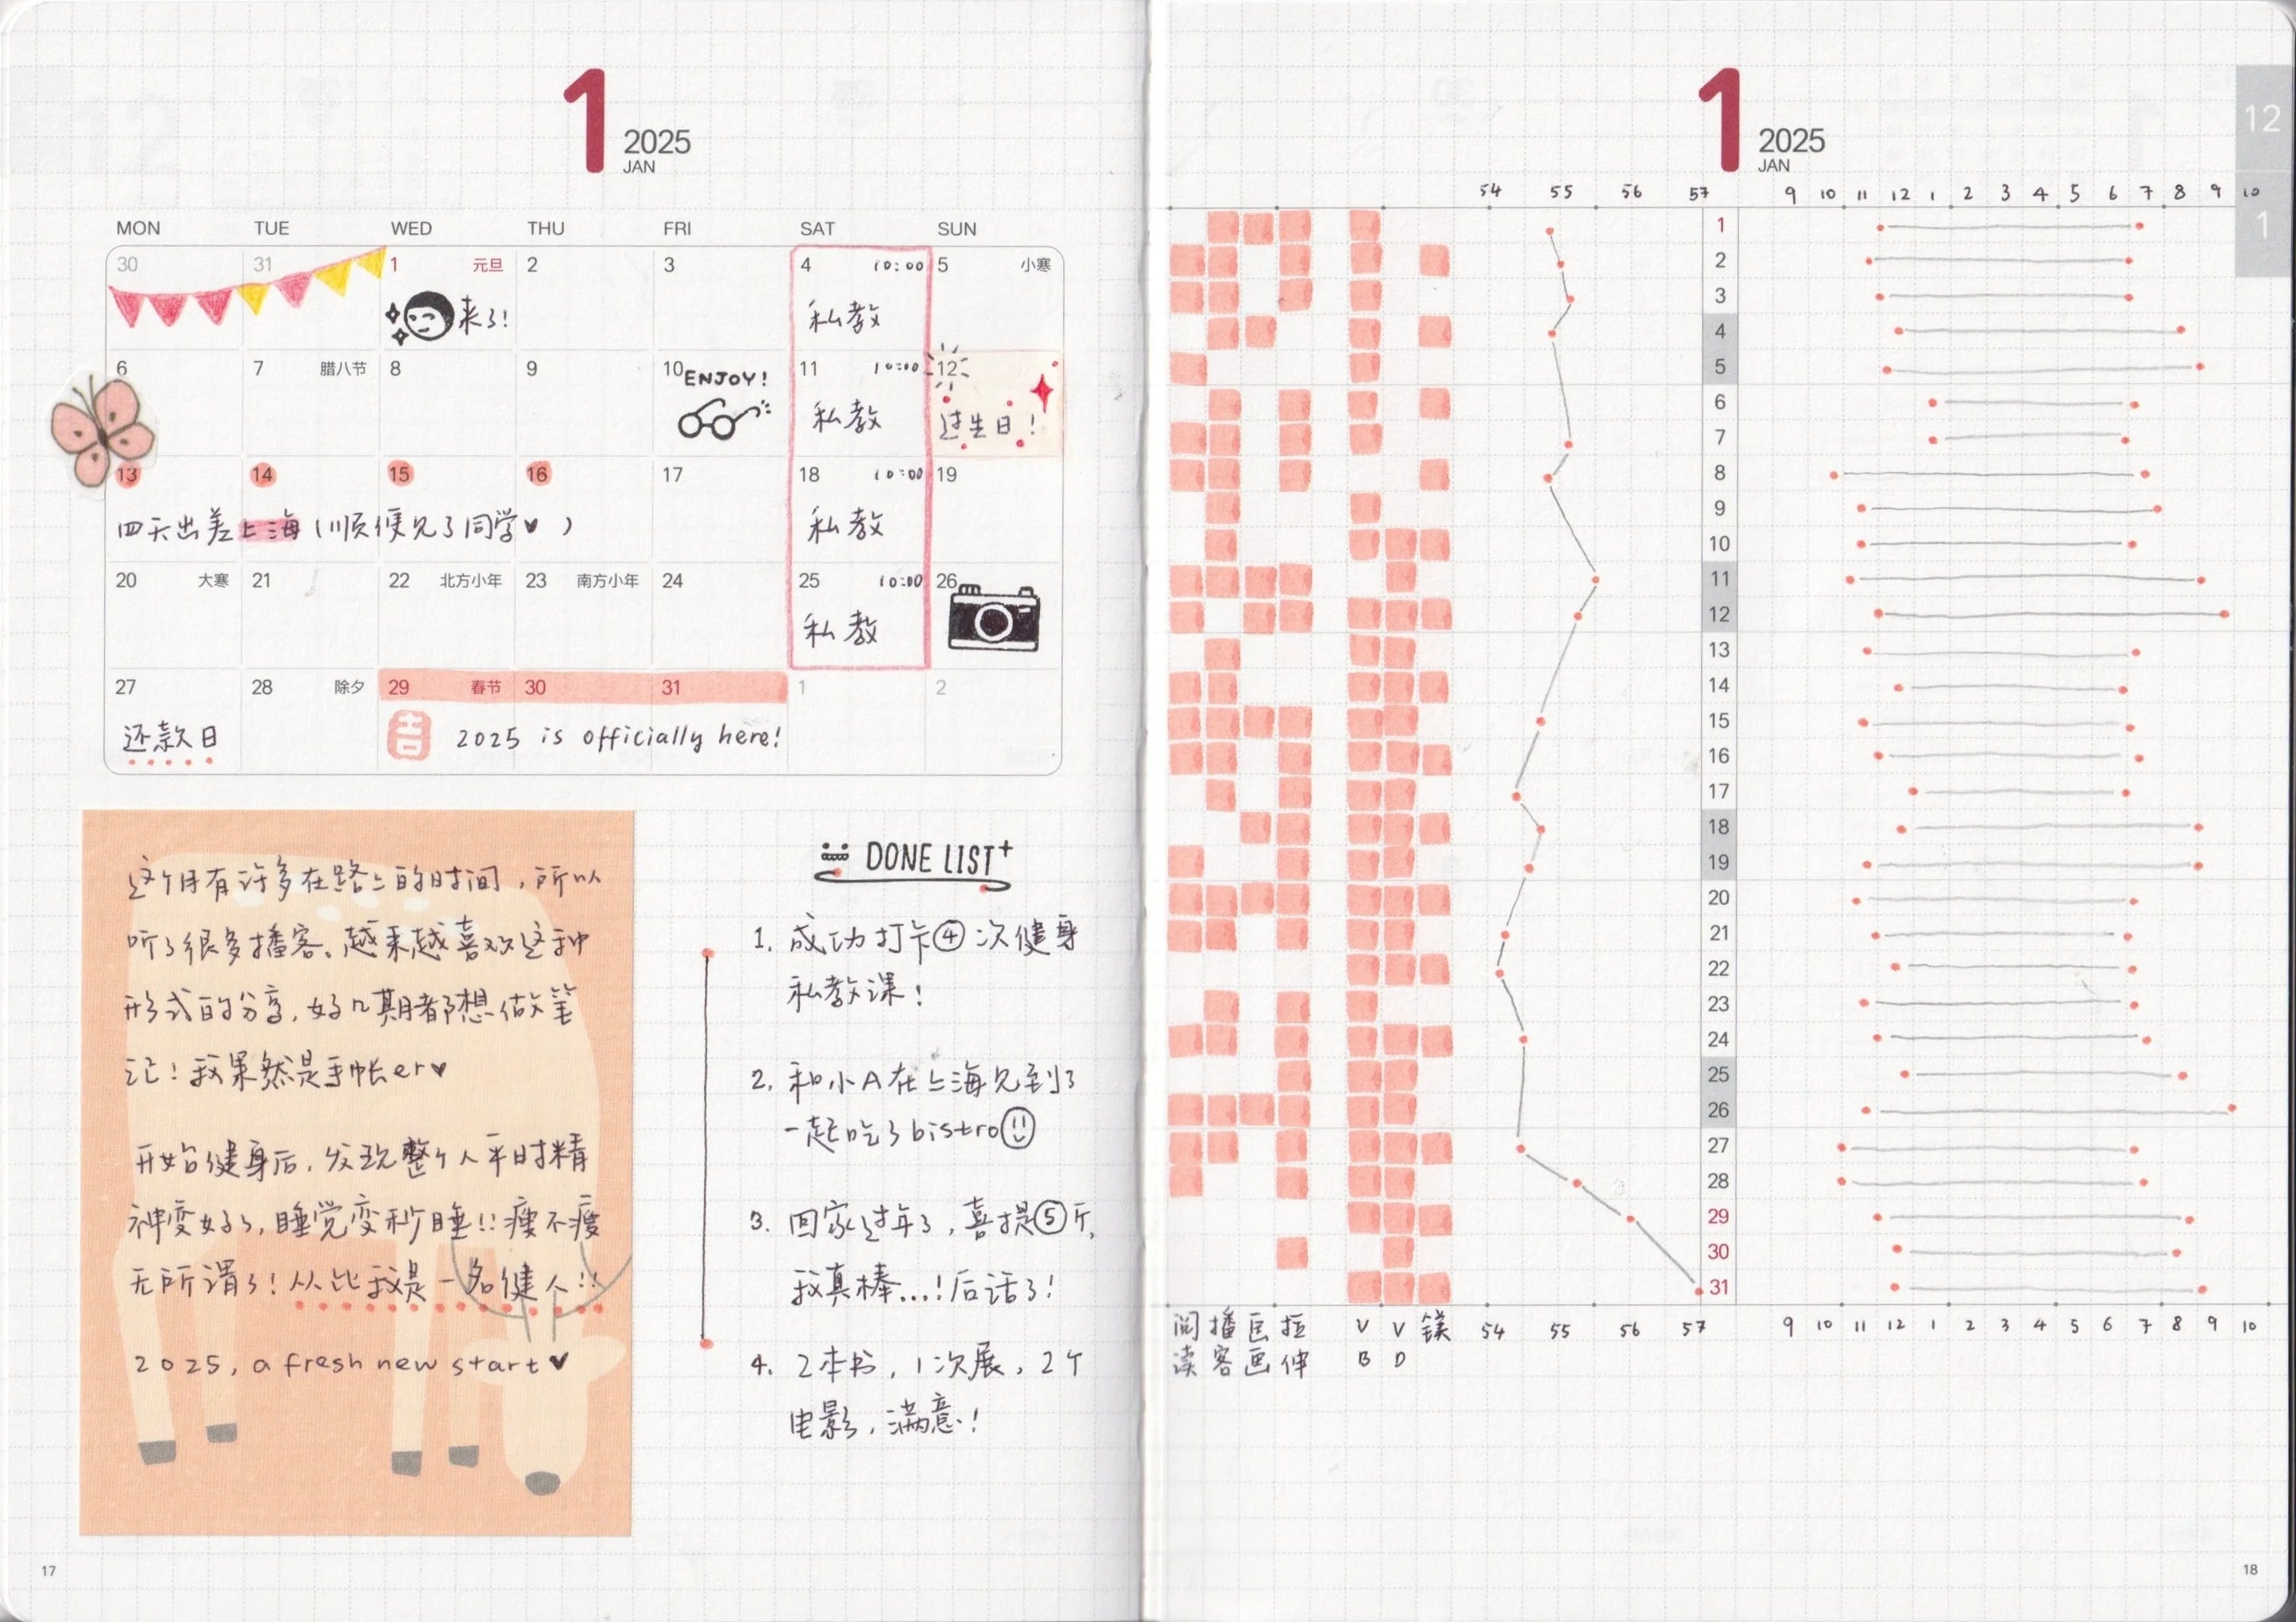 1
2025
JAN
MON TUE WED THU FRI SAT SUN
30 31 1 元旦 2 3 4 10:00 5 小寒
来了!
私教
6 7 腊八节 8 9 10 ENJOY! 11 10:00 12
私教
过生日!
13 14 15 16 17 18 10:00 19
四天出差上海(顺便见了同学♥)
私教
20 大寒 21 22 北方小年 23 南方小年 24 25 10:00 26
私教
27 28 除夕 29 春节 30 31 1 2
还款日
吉 2025 is officially here!
这个月有许多在路上的时间,所以
听了很多播客。越来越喜欢这种
形式的分享,好几期都想做笔
记!我果然是手帐er♥
开始健身后,发现整个人平时精
神变好了,睡觉变秒睡!!瘦不瘦
无所谓了!从此我是一名健人!!
2025, a fresh new start♥
DONE LIST+
1. 成功打卡④次健身
私教课!
2. 和小A在上海见到了
一起吃了bistro
3. 回家过年了,喜提⑤斤,
我真棒...!后话了!
4. 2本书,1次展,2个
电影,满意!
17
1
2025
JAN
12
1
54 55 56 57 9 10 11 12 1 2 3 4 5 6 7 8 9 10
1
2
3
4
5
6
7
8
9
10
11
12
13
14
15
16
17
18
19
20
21
22
23
24
25
26
27
28
29
30
31
阅读 播客 画画 拉伸 VB VD 镁 54 55 56 57 9 10 11 12 1 2 3 4 5 6 7 8 9 10
18